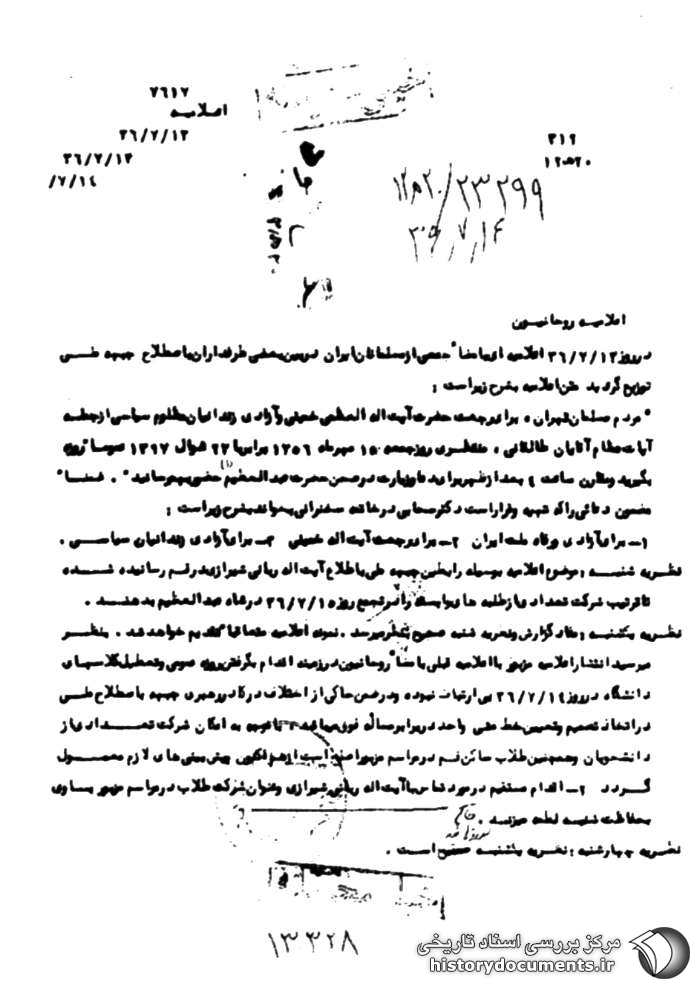 ۷۶۱۲
اعلامیه
۳۶/۷/۱۳
۳۶/۷/۱۳
/۷/۱۴
۳۱۲
۱۲ه۲۰
۲۳۲۹۹/۱۲ه۲۰
۳۶/۷/۱۶
اعلامیه روحانیون
در روز ۳۶/۷/۱۳ اعلامیه ای با مضاء جمعی از مسلمانان ایران در بین بعضی طرفداران باصطلاح جبهه ملی
توزیع گردید متن اعلامیه بشرح زیر است :
" مردم مسلمان تهران ، برای رجعت حضرت آیت اله العظمی خمینی و آزادی زندانیان مظلوم سیاسی از جمله
آیات عظام آقایان طالقانی ، منتظری روز جمعه ۱۵ مهرماه ۱۳۵۶ برابر با ۲۲ شوال ۱۳۹۷ عموما " روزه
بگیرید و مقارن ساعت ۴ بعد از ظهر برای دعا و زیارت در صحن حضرت عبدالعظیم (۱) حضور بهم رسانید " . ضمنا "
مضمون دعائی را که تهیه و قرار است دکتر سحابی در خاتمه سخنرانی بخواند بشرح زیر است :
۱- برای آزادی و رفاه ملت ایران ۲- برای رجعت آیت اله خمینی ۳- برای آزادی زندانیان سیاسی .
نظریه شنبه : موضوع اعلامیه بوسیله رابطین جبهه ملی باطلاع آیت اله ربانی شیرازی در قم رسانیده شده
تا ترتیب شرکت تعدادی از طلبه های وابسته را در تجمع روز ۳۶/۷/۱۵ در شاه عبدالعظیم بدهند .
نظریه یکشنبه : مفاد گزارش و نظریه شنبه صحیح بنظر میرسد . نمونه اعلامیه متعاقبا تقدیم خواهد شد . بنظر
میرسد انتشار اعلامیه مزبور با اعلامیه قبلی با مضاء روحانیون در زمینه اقدام بگرفتن روزه عمومی و تعطیل کلاسهای
دانشگاه در روز ۳۶/۷/۱۴ بی ارتباط نبوده و در ضمن حاکی از اختلاف در کادر رهبری جبهه باصطلاح ملی
در اتخاذ تصمیم و تعیین خط مشی واحد در برابر مسائل فوق میباشد با توجه به امکان شرکت تعدادی از
دانشجویان و همچنین طلاب ساکن قم در مراسم مزبور اصلح است از هم اکنون پیش بینی های لازم معمول
گردد ۲- اقدام مستقیم در مورد تماس با آیت اله ربانی شیرازی و عنوان شرکت طلاب در مراسم مزبور بساوی
بحفاظت شنبه لطمه میزند .
نظریه چهارشنبه : نظریه یکشنبه صحیح است .
۱۳۳۲۸
مرکز بررسی اسناد تاریخی
historydocuments.ir